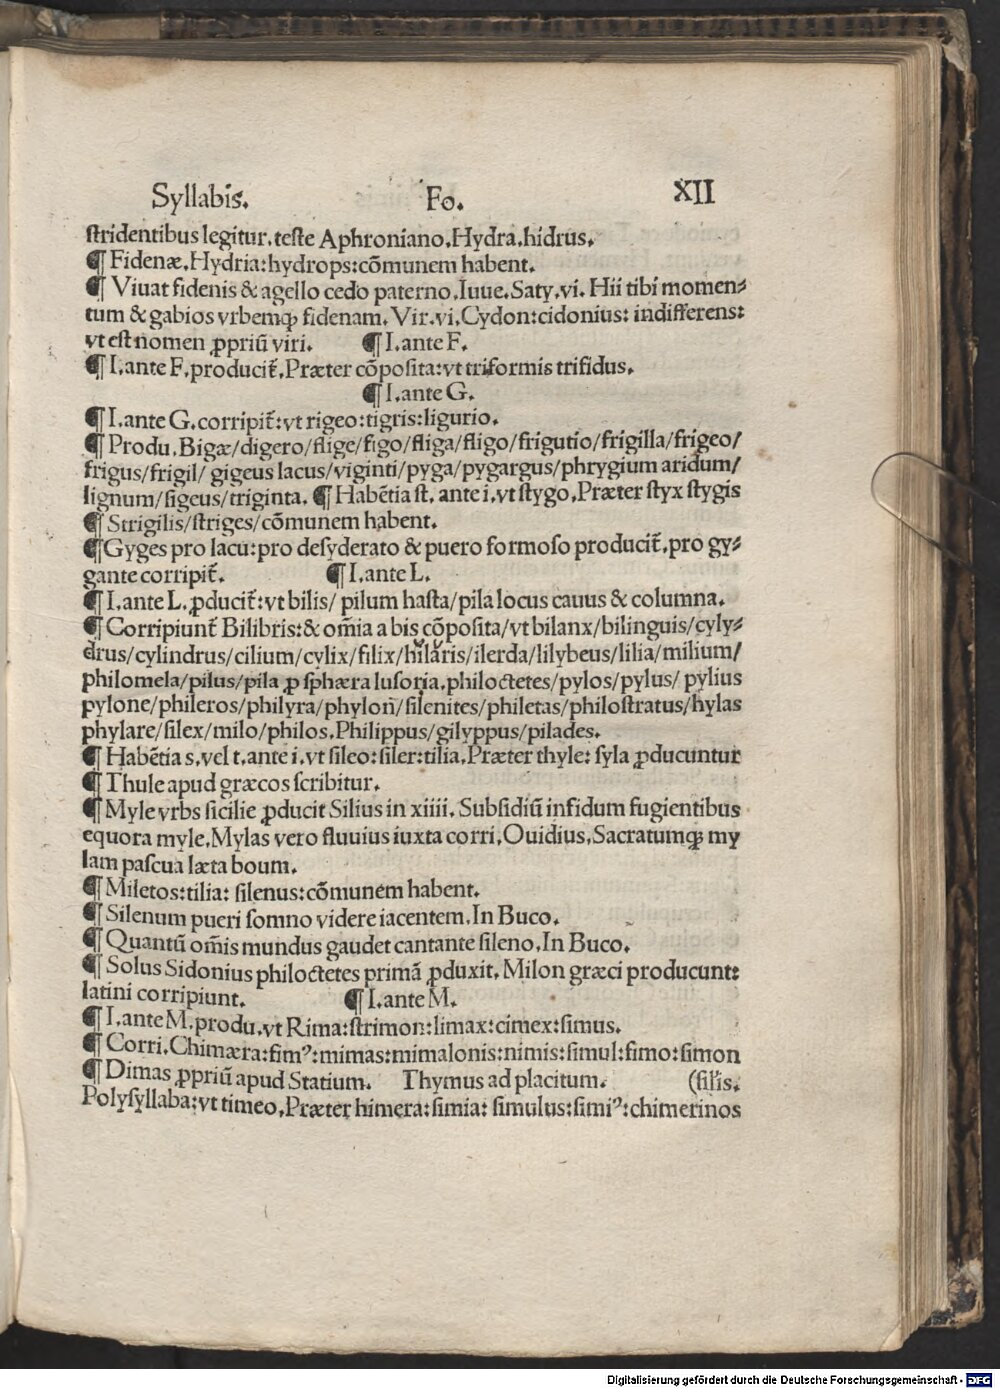 Syllabis. Fo. XII
stridentibus legitur. teste Aphroniano. Hydra. hidrus.
¶ Fidenæ. Hydria: hydrops: cōmunem habent.
¶ Viuat fidenis & agello cedo paterno. Iuue. Saty. vi. Hii tibi momen⸗
tum & gabios vrbemꝙ fidenam. Vir. vi. Cydon: cidonius: indifferens:
vt est nomen ꝓpriū viri. ¶ I. ante F.
¶ I. ante F. producit̃. Præter cōposita: vt triformis trifidus.
¶ I. ante G.
¶ I. ante G. corripit̃: vt rigeo: tigris: ligurio.
¶ Produ. Bigæ/digero/flige/figo/fliga/fligo/frigutio/frigilla/frigeo/
frigus/frigil/ gigeus lacus/viginti/pyga/pygargus/phrygium aridum/
lignum/sigeus/triginta. ¶ Habētia st. ante i. vt stygo. Præter styx stygis
¶ Strigilis/striges/cōmunem habent.
¶ Gyges pro lacu: pro desyderato & puero formoso producit̃. pro gy⸗
gante corripit̃. ¶ I. ante L.
¶ I. ante L. ꝓducit̃: vt bilis/ pilum hasta/pila locus cauus & columna.
¶ Corripiunt̃ Bilibris: & om̄ia a bis cōposita/vt bilanx/bilinguis/cyly⸗
drus/cylindrus/cilium/cylix/filix/hilaris/ilerda/lilybeus/lilia/milium/
philomela/pilus/pila ꝓ sphæra lusoria. philoctetes/pylos/pylus/ pylius
pylone/phileros/philyra/phylon/silenites/philetas/philostratus/hylas
phylare/silex/milo/philos. Philippus/gilyppus/pilades.
¶ Habētia s. vel t. ante i. vt sileo: siler: tilia. Præter thyle: syla ꝓducuntur
¶ Thule apud græcos scribitur.
¶ Myle vrbs sicilie ꝓducit Silius in xiiii. Subsidiū infidum fugientibus
equora myle. Mylas vero fluuius iuxta corri. Ouidius. Sacratumꝙ my
lam pascua læta boum.
¶ Miletos: tilia: silenus: cōmunem habent.
¶ Silenum pueri somno videre iacentem. In Buco.
¶ Quantū om̄is mundus gaudet cantante sileno. In Buco.
¶ Solus Sidonius philoctetes primā ꝓduxit. Milon græci producunt:
latini corripiunt. ¶ I. ante M.
¶ I. ante M. produ. vt Rima: strimon: limax: cimex: simus.
¶ Corri. Chimæra: fimꝰ: mimas: mimalonis: nimis: simul: fimo: simon
¶ Dimas ꝓpriū apud Statium. Thymus ad placitum. (silis.
Polysyllaba: vt timeo. Præter himera: simia: simulus: simiꝰ: chimerinos
Digitalisierung gefördert durch die Deutsche Forschungsgemeinschaft - DFG